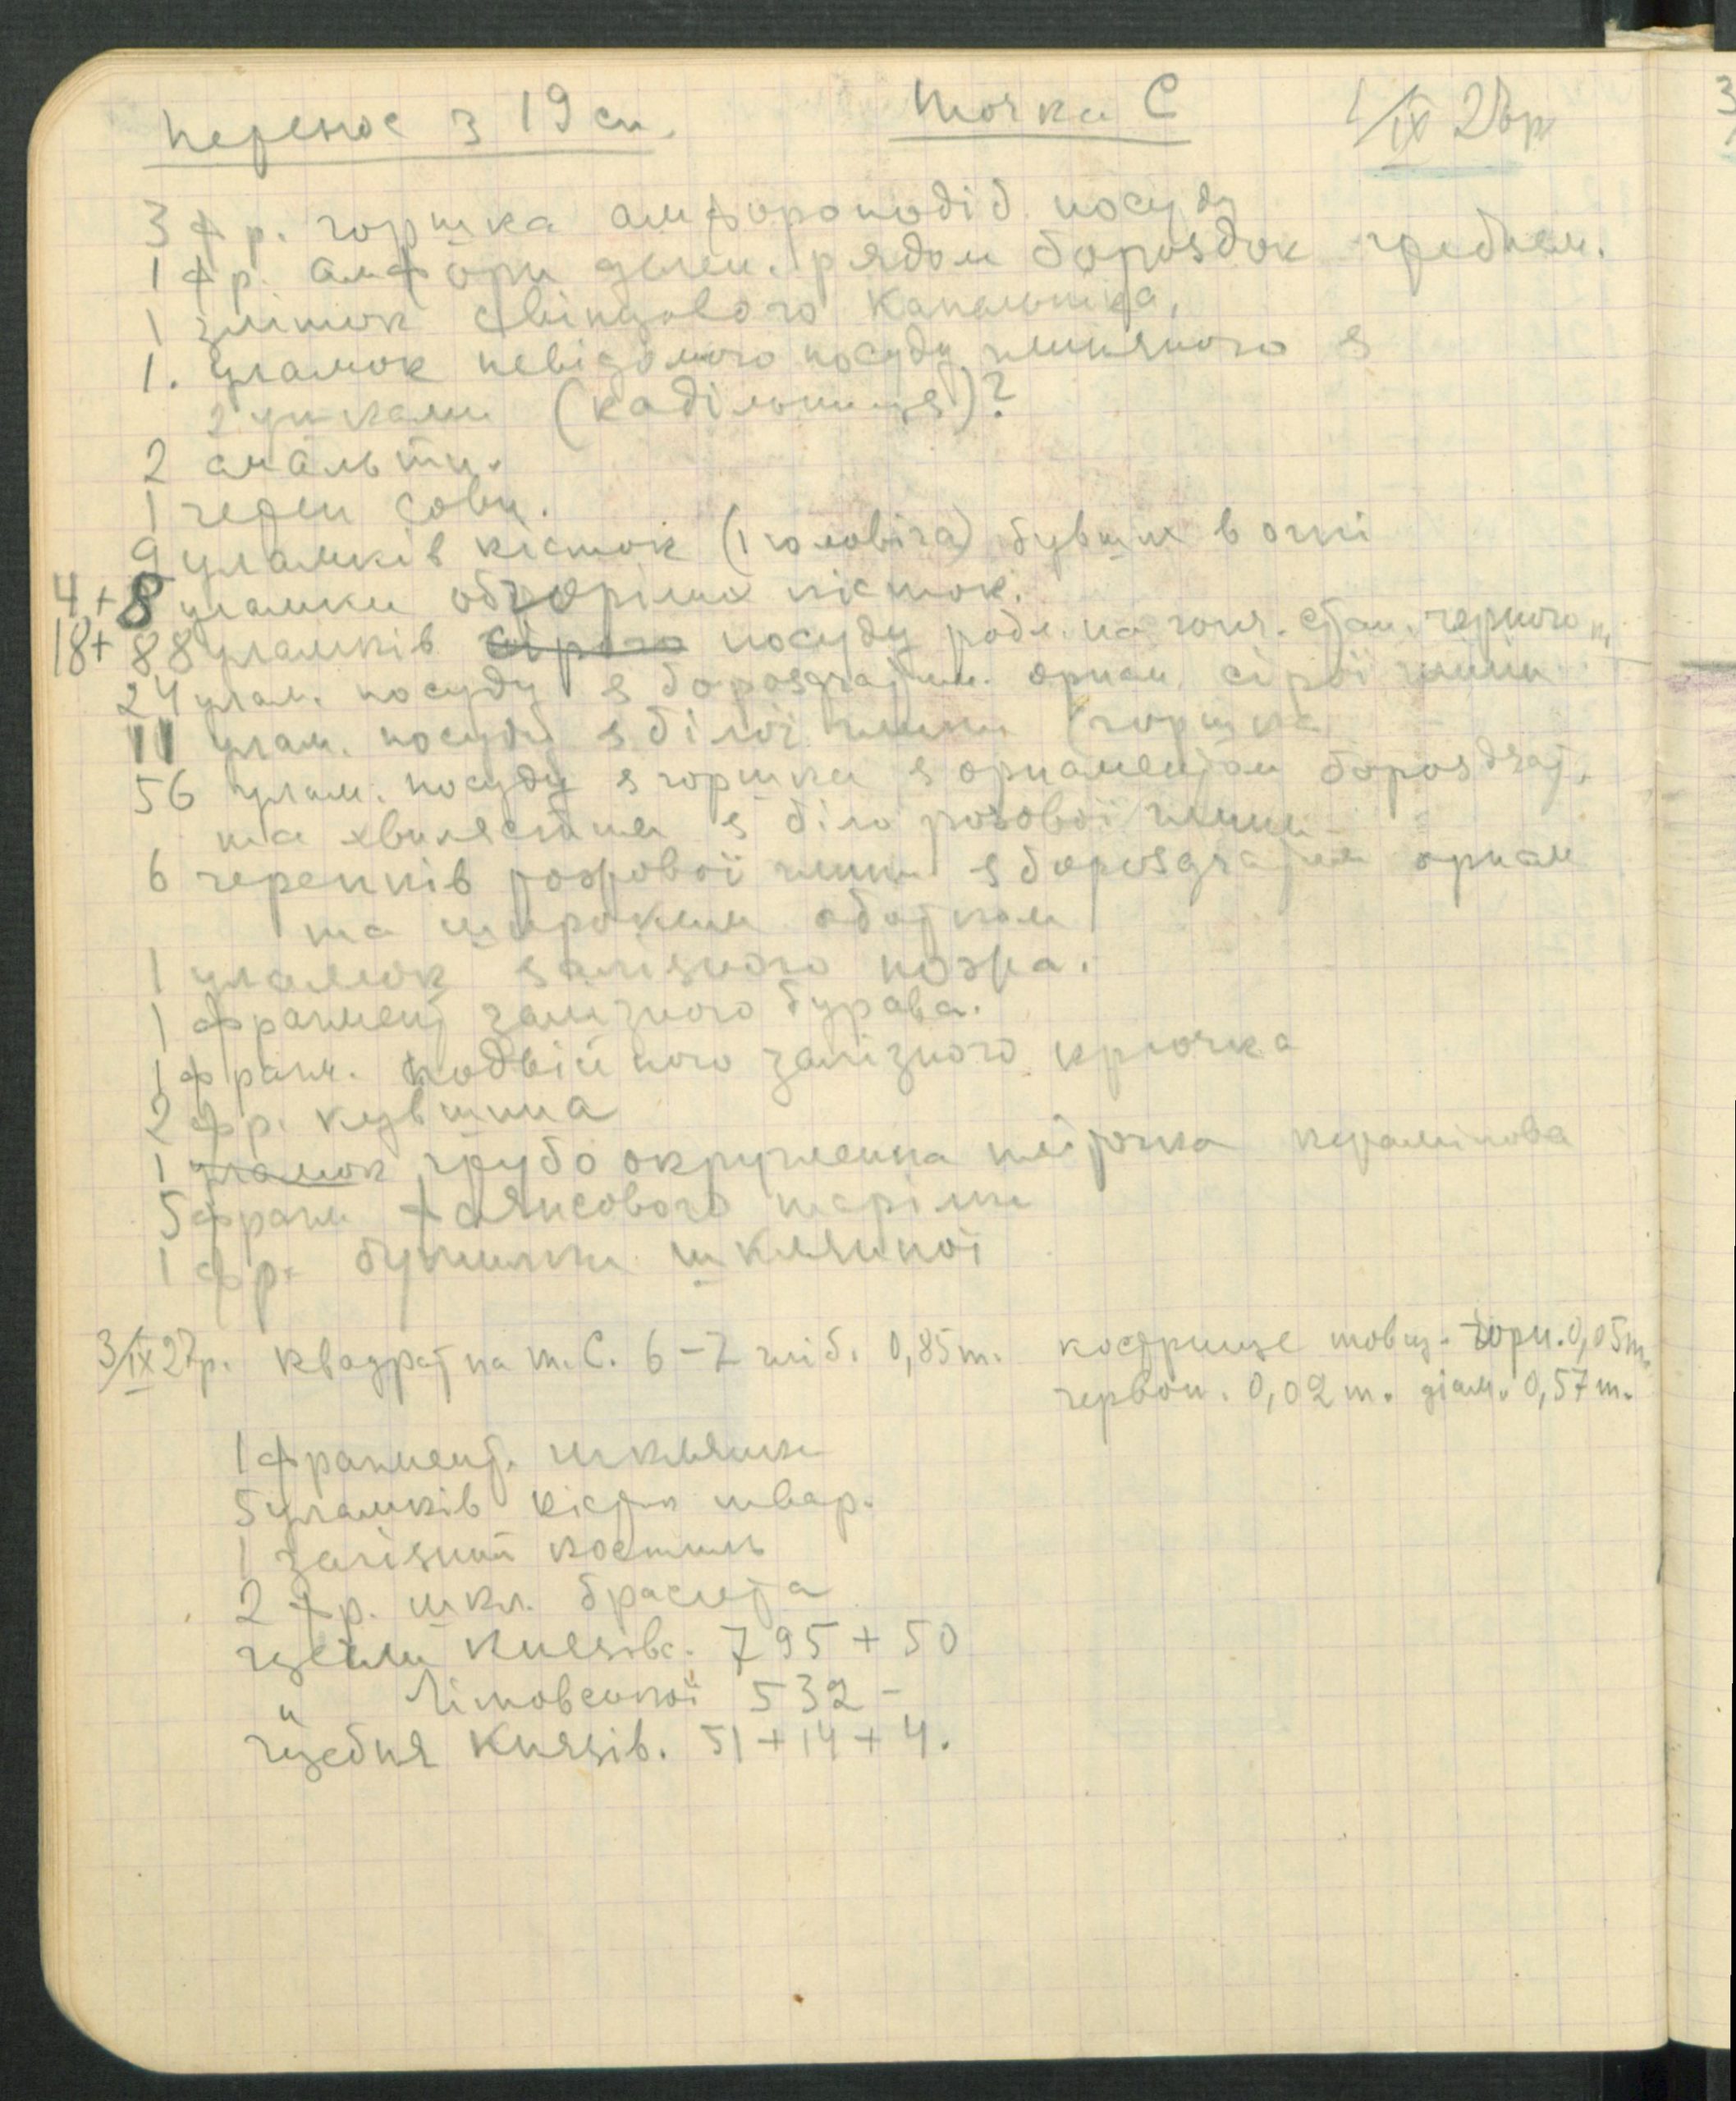 Перенос з 19 ст.
Точка С
1/IX 27р
3 фр. горшка амфороподіб. посуду
1 фр. амфори рядом бороздок гребнем.
1 злиток свинцового капельника,
1. уламок невідомого посуду глиняного з
2 ушками (кадільниця)?
2 смальти.
1 череп сови.
9 уламків кісток (1 чоловіча) бувших в огні
4+8 уламки обгорілих кісток.
18+88 уламків сірого посуду робл. на гонч. стан. черного
24 улам. посуду з бороздчатим. орнам. сірої глини
11 улам. посуду з білої глини (горшка
56 улам. посуду з горшка з орнаментом бороздчат.
та хвилястим з біло розової глини
6 черепків розової глини з бороздчатим орнам
та широким обідком
1 уламок залізного ножа.
1 фрагмент залізного бурава.
1 фрагм. подвійного залізного крючка
2 фр. кувшина
1 уламок грубо округленна плиточка керамікова
5 фрагм фаянсового тарілки
1 фр. бутилки шкляної
3/IX 27р. квадрат на т. С. 6-7 глиб. 0,85 m. кострище товщ. чорн. 0,05 m.
червон. 0,02 m. діам. 0,57 m.
1 фрагмент. шклянки
5 уламків кісток твар.
1 залізний костиль
2 фр. шкл. браслета
цегли Князівс. 795 + 50
" Литовської 532 -
щебня Князів. 51 + 14 + 4.